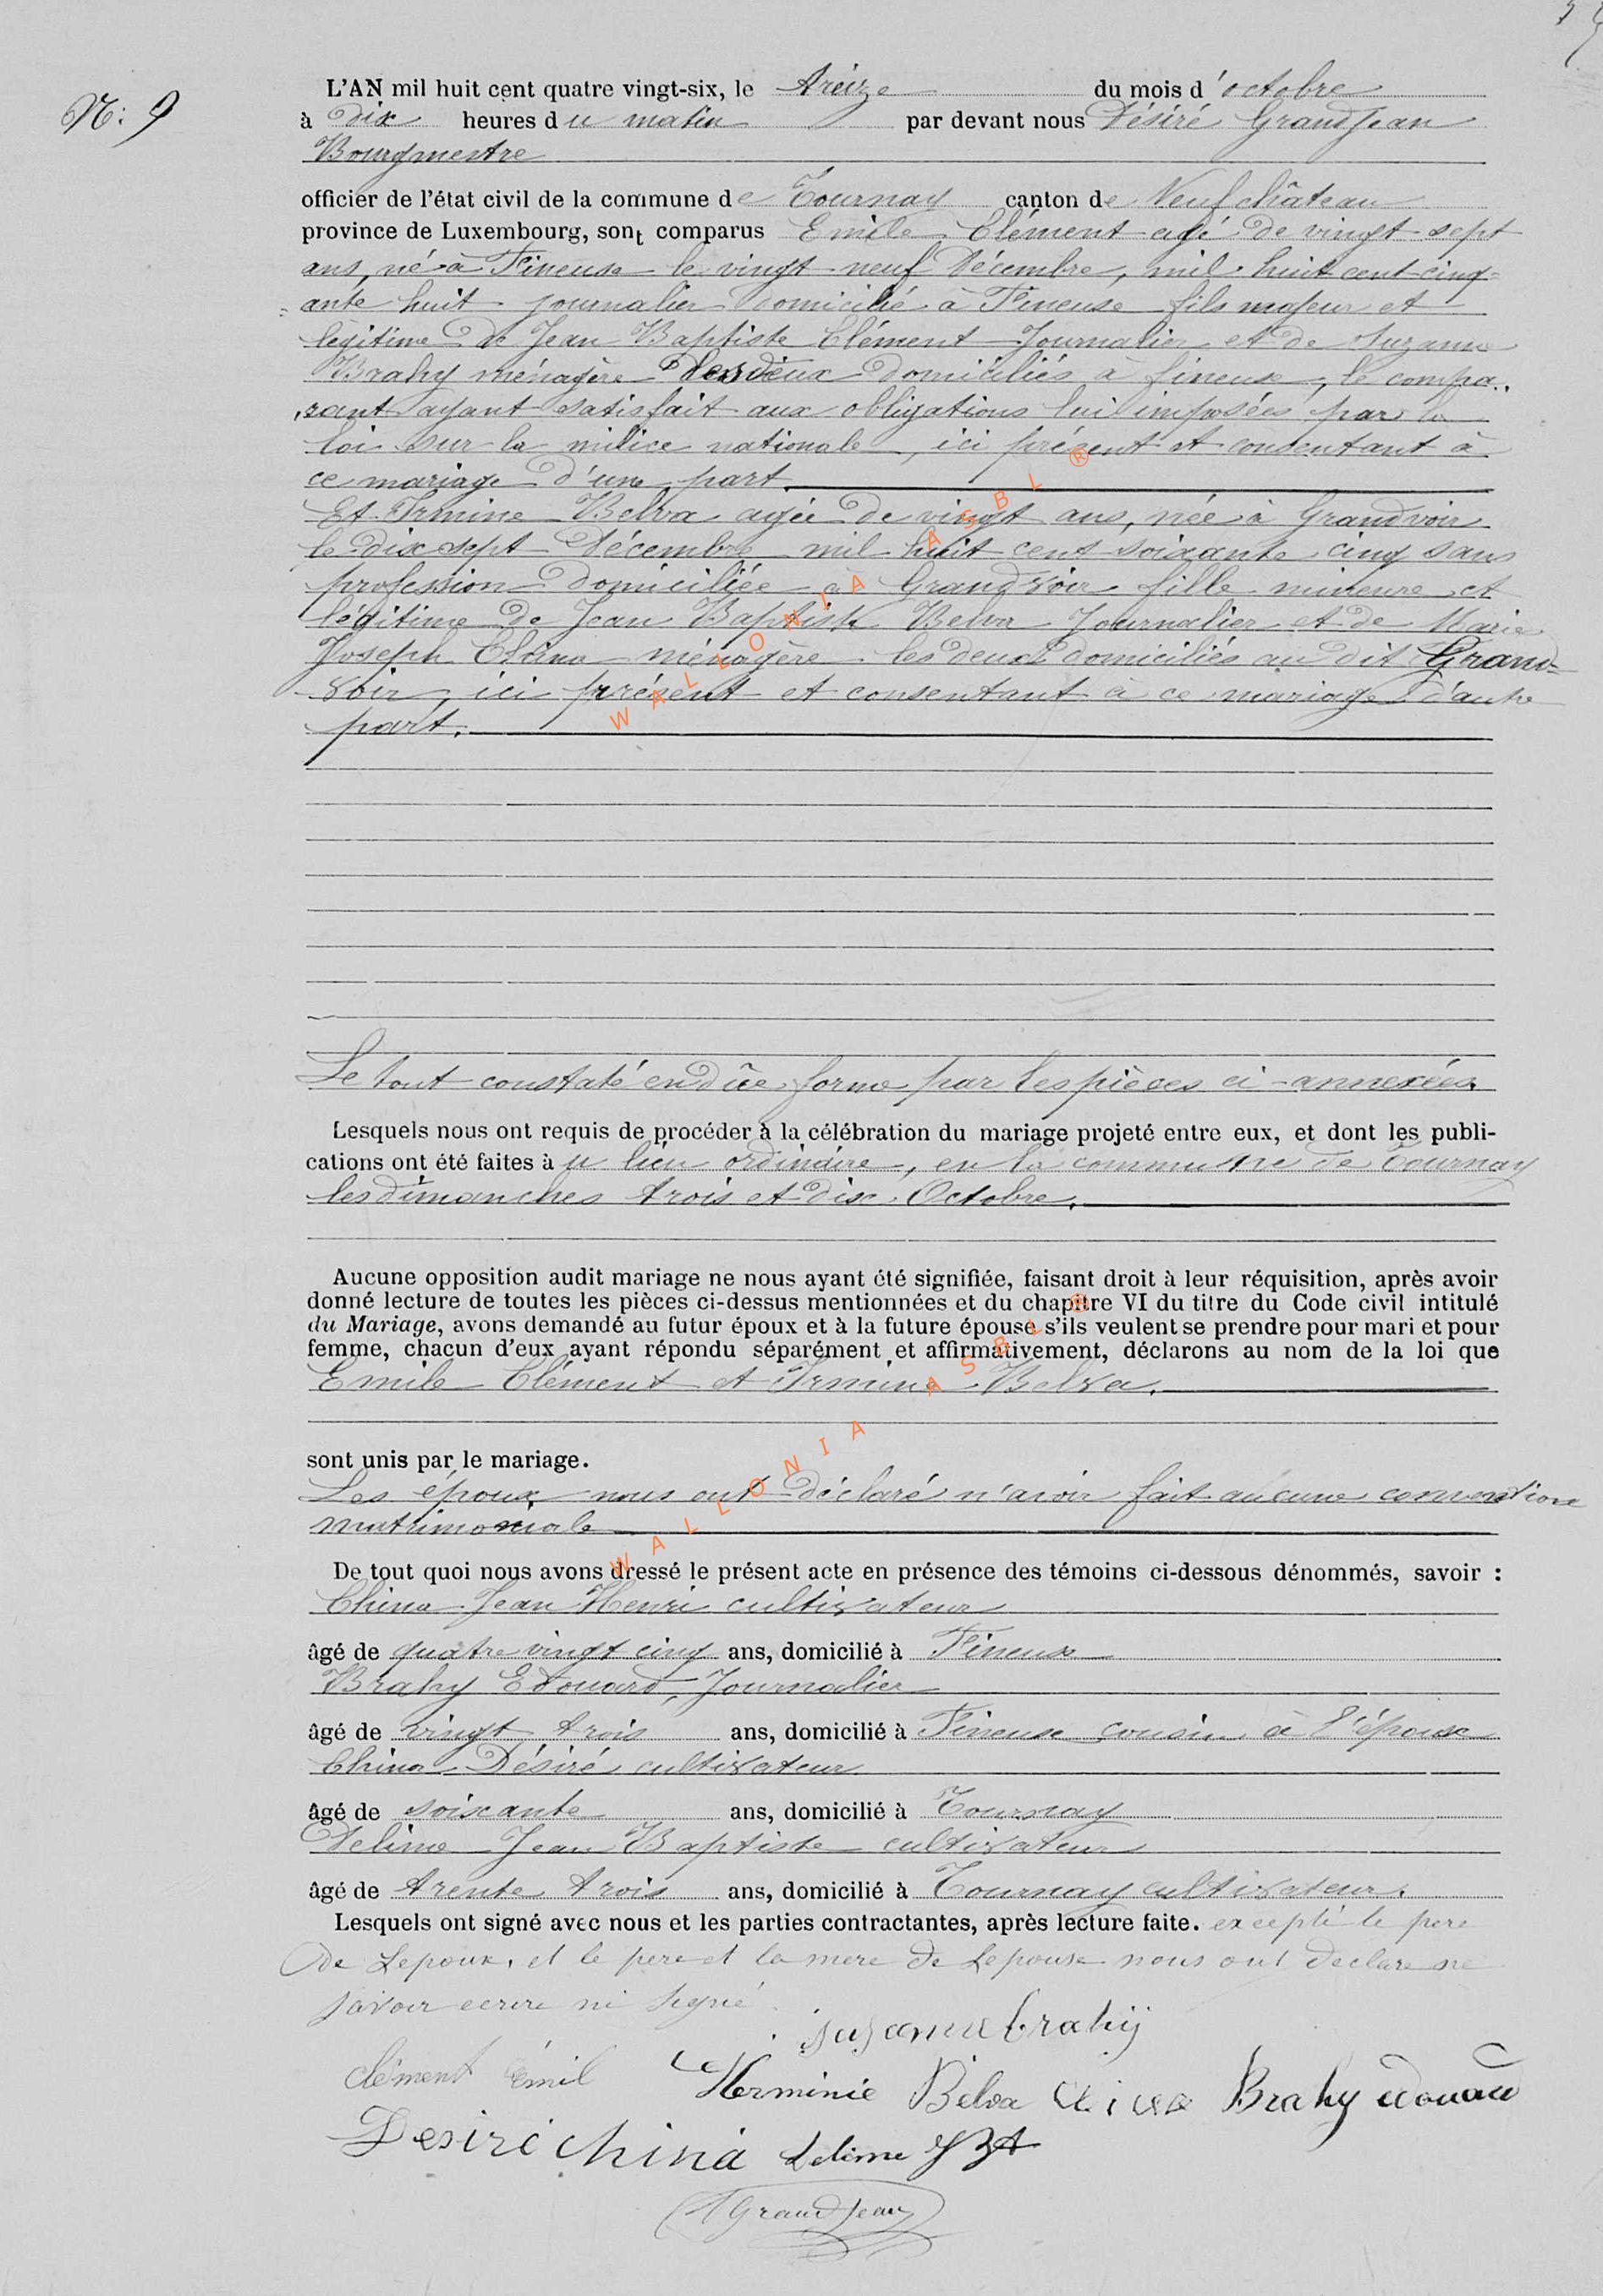 N: 9
L'AN mil huit cent quatre vingt-six, le treize du mois d'octobre
à dix heures du matin par devant nous Désiré Grandjean
Bourgmestre
officier de l'état civil de la commune de Tournay canton de Neufchâteau
province de Luxembourg, sont comparus Emile Clément agé de vingt sept
ans, né à Fineuse le vingt neuf Décembre, mil huit cent cinq-
ante huit journalier domicilié à Fineuse fils majeur et
legitime de Jean Baptiste Clément Journalier et de Suzanne
Brahy ménagère les deux domiciliés à fineuse, le compa
rant ayant satisfait aux obligations lui imposées par la
loi sur la milice nationale, ici présent et consentant à
ce mariage d'une part.
Et Irmine Belva agée de vingt ans, née à Grandvoir
le dix sept Décembre mil huit cent soixante cinq sans
profession domiciliée à Grandvoir fille mineure et
légitime de Jean Baptiste Belva Journalier et de Marie
Joseph China ménagère les deux domiciliés au dit Grand-
voir, ici présent et consentant à ce mariage d'autre
part.
Le tout constaté en dûe forme par les pièces ci-annexées.
Lesquels nous ont requis de procéder à la célébration du mariage projeté entre eux, et dont les publi-
cations ont été faites au lieu ordinaire, en la commune de Tournay
les dimanches trois et dix Octobre.
Aucune opposition audit mariage ne nous ayant été signifiée, faisant droit à leur réquisition, après avoir
donné lecture de toutes les pièces ci-dessus mentionnées et du chapitre VI du titre du Code civil intitulé
du Mariage, avons demandé au futur époux et à la future épouse s'ils veulent se prendre pour mari et pour
femme, chacun d'eux ayant répondu séparément et affirmativement, déclarons au nom de la loi que
Emile Clément et Irmine Belva.
sont unis par le mariage.
Les époux nous ont déclaré n'avoir fait aucune convention
matrimoniale
De tout quoi nous avons dressé le présent acte en présence des témoins ci-dessous dénommés, savoir :
China Jean Henri cultivateur
âgé de quatre vingt cinq ans, domicilié à Fineuse
Brahy Edouard, Journalier
âgé de vingt trois ans, domicilié à Fineuse cousin à l'époux
China Désiré cultivateur
âgé de soixante ans, domicilié à Tournay
Delime Jean Baptiste cultivateur
âgé de trente trois ans, domicilié à Tournay cultivateur.
Lesquels ont signé avec nous et les parties contractantes, après lecture faite. excepté le pere
de Lepoux, et le pere et la mere de Lepouse nous ont declare ne
savoir ecrire ni signé
suzanne brahij
Clément Émil Herminie Belva China Brahy Edouard
Desiré china Delime JBt
D Grandjean
WALLONIA ASBL ®
WALLONIA ASBL ®